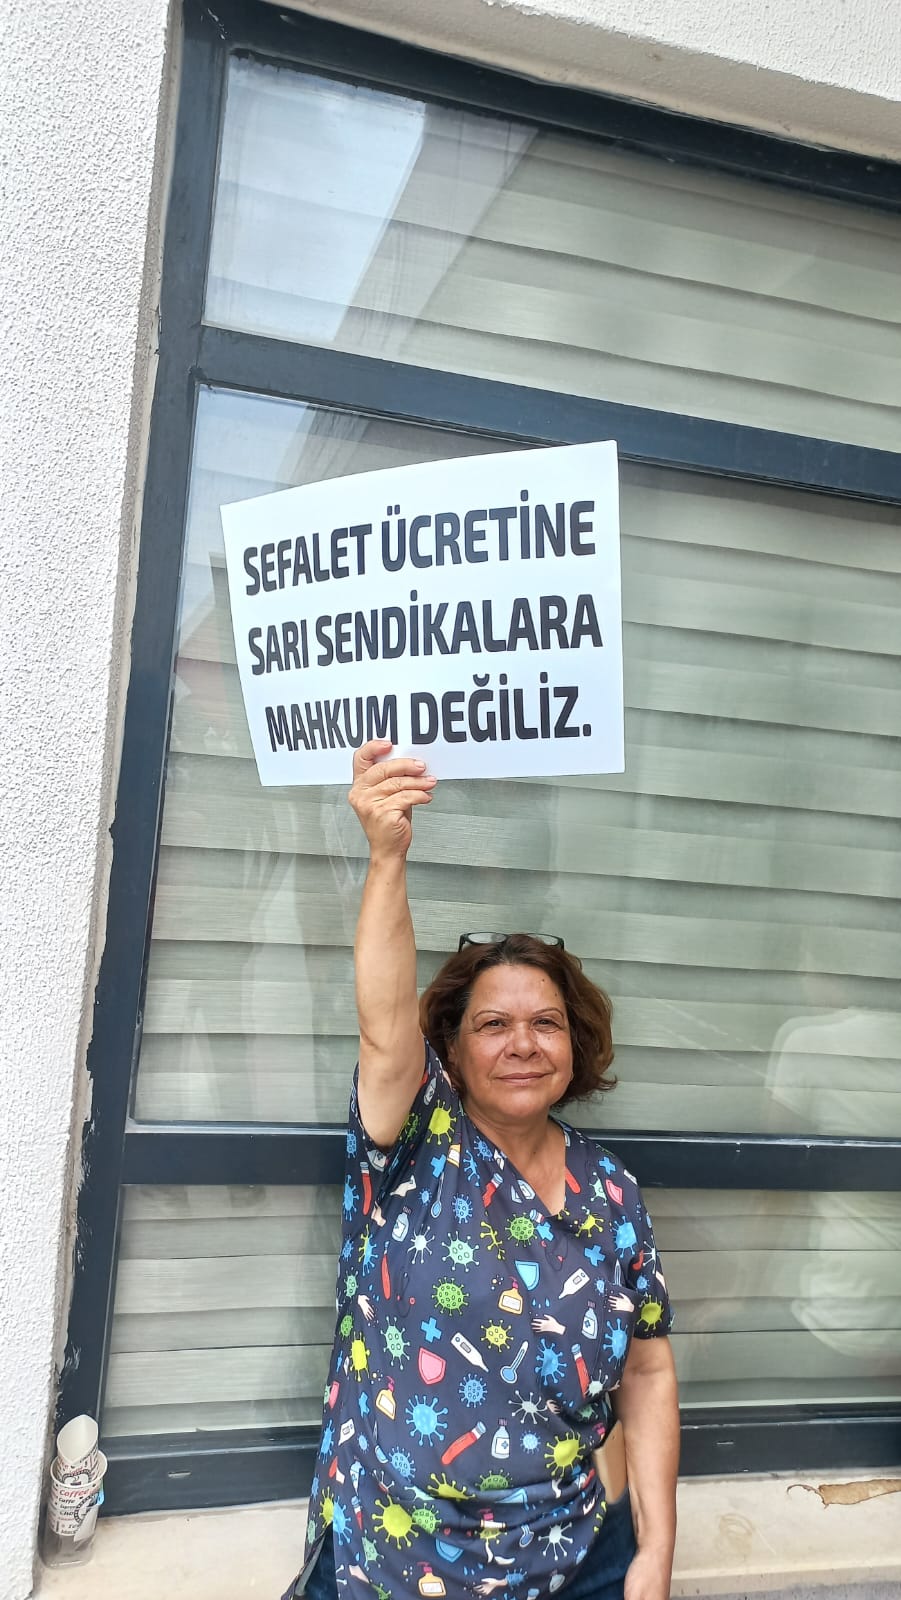 SEFALET ÜCRETİNE
SARI SENDİKALARA
MAHKUM DEĞİLİZ.
Coffee